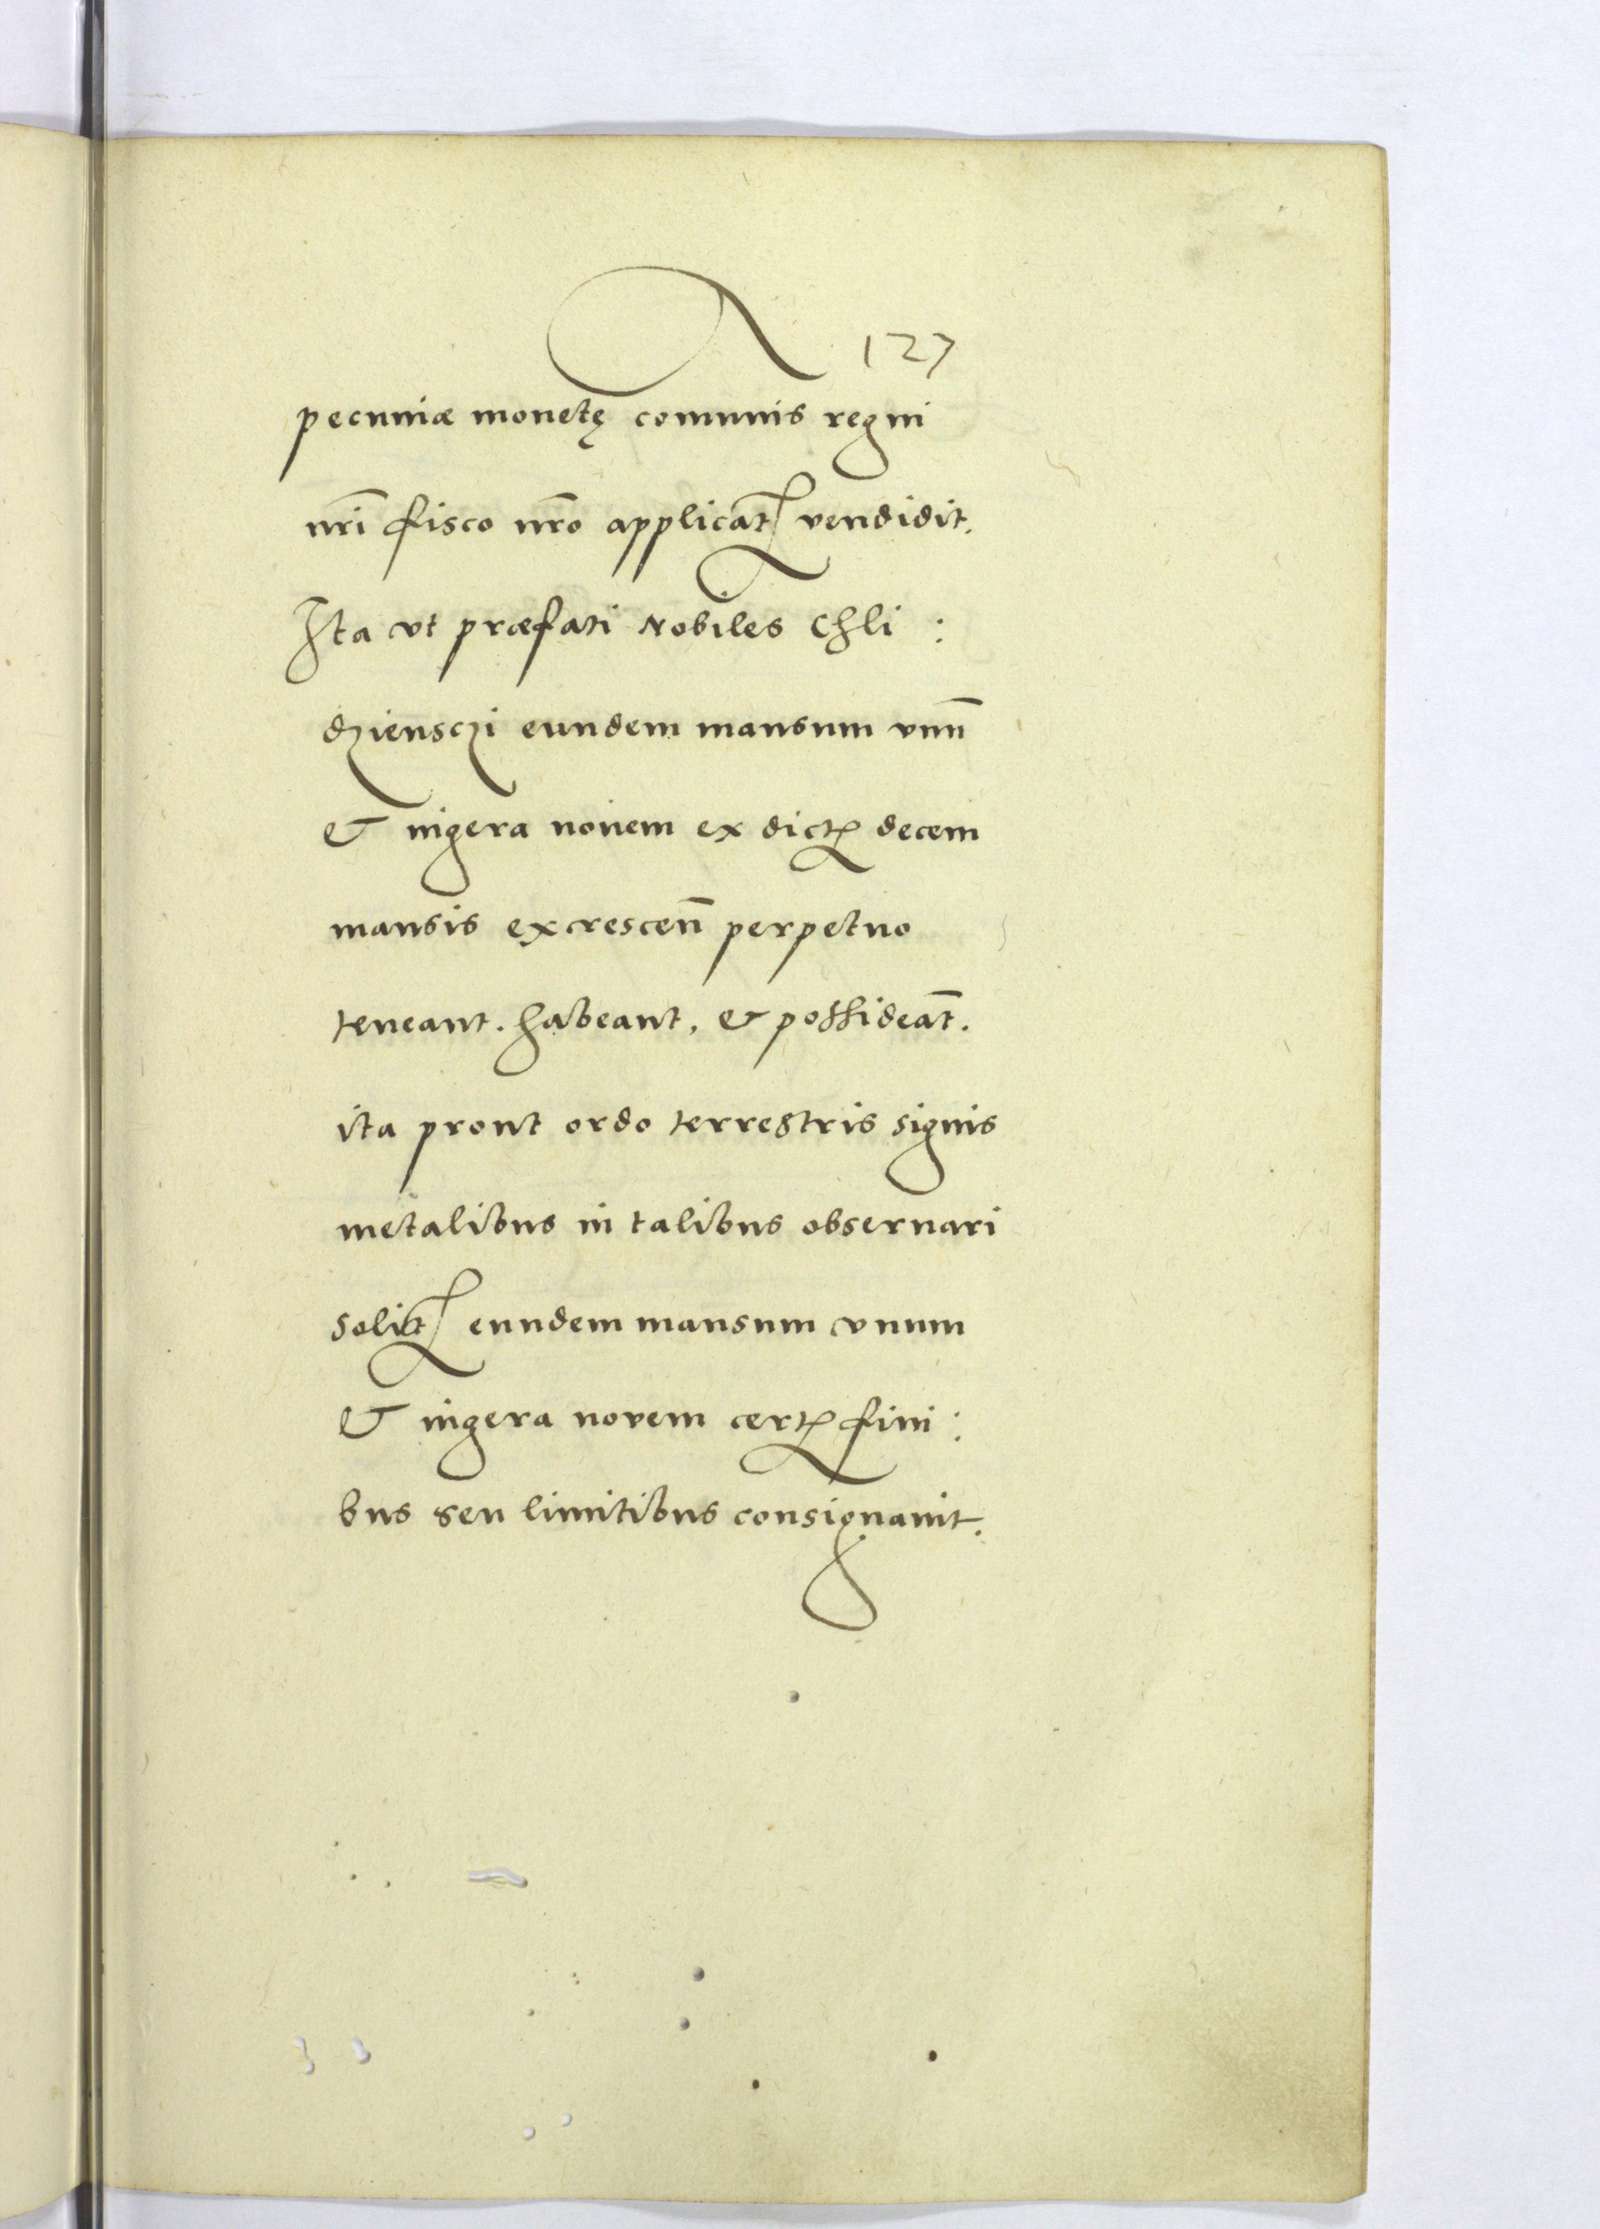 127
pecuniæ monetę comunis regni
nr̃i fisco nr̃o applicat̃ vendidit.
Ita vt præfati Nobiles Chli:
dzienszi eundem mansum vnũ
& iugera nouem ex dict decem
mansis excrescen̄ perpetuo
teneant. habeant, & possideāt.
ita prout ordo terrestris signis
metalibus in talibus obseruari
solit eundem mansum vnum
& iugera novem cert fini:
bus seu limitibus consignauit.